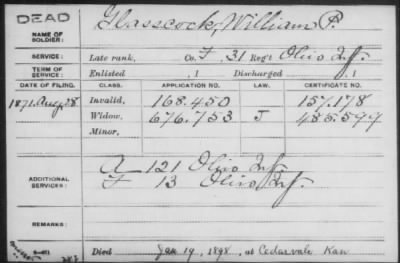 DEAD
NAME OF SOLDIER: Glasscock, William P.
SERVICE: Late rank, Co. F, 31 Reg't Ohio Inf.
TERM OF SERVICE: Enlisted , 1 Discharged , 1
DATE OF FILING. CLASS. APPLICATION NO. LAW. CERTIFICATE NO.
1871. Aug. 28 Invalid, 168.450 157.178
Widow, 676.753 J 485.597
Minor,
A 121 Ohio Inf.
ADDITIONAL SERVICES: F 13 Ohio Inf.
REMARKS:
Died Jan 19, 1898, at Cedarvale Kan